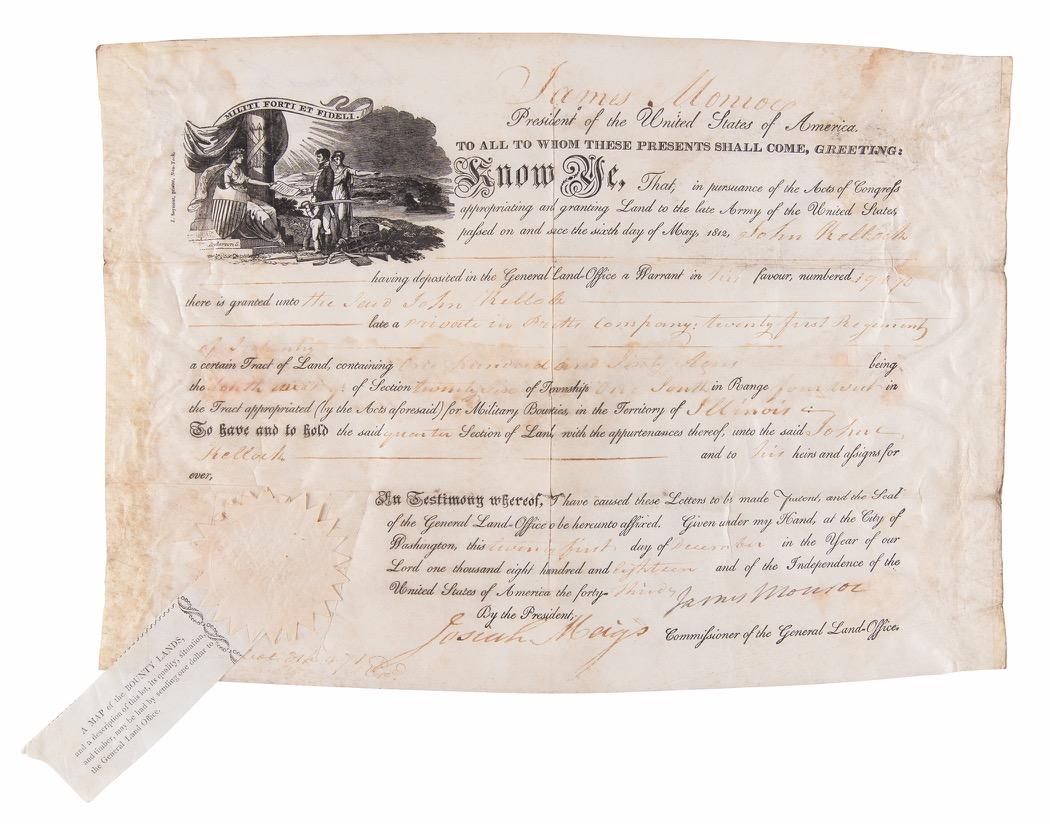 MILITI FORTI ET FIDELI.
James Monroe
President of the United States of America.
TO ALL TO WHOM THESE PRESENTS SHALL COME, GREETING:
Know Ye, That, in pursuance of the Acts of Congress
appropriating an granting Land to the late Army of the United States,
passed on and since the sixth day of May, 1812, John Kellock
having deposited in the General Land-Office a Warrant in his favour, numbered
there is granted unto the said John Kellock
late a private in company; twenty first Regiment
of Infantry
a certain Tract of Land, containing One hundred and sixty Acres being
the of Section of Township South in Range four West in
the Tract appropriated (by the Acts aforesaid) for Military Bounties, in the Territory of Illinois
To have and to hold the said quarter Section of Land, with the appurtenances thereof, unto the said John
Kellock and to his heirs and assigns for
ever,
In Testimony whereof, I have caused these Letters to be made Patent, and the Seal
of the General Land-Office o be hereunto affixed. Given under my Hand, at the City of
Washington, this twenty first day of December in the Year of our
Lord one thousand eight hundred and eighteen and of the Independence of the
United States of America the forty-third James Monroe
By the President,
Josiah Meigs Commissioner of the General Land-Office.
A MAP of the BOUNTY LANDS,
and a description of this lot, its quality, situation,
and timber, may be had by sending one dollar to
the General Land Office.